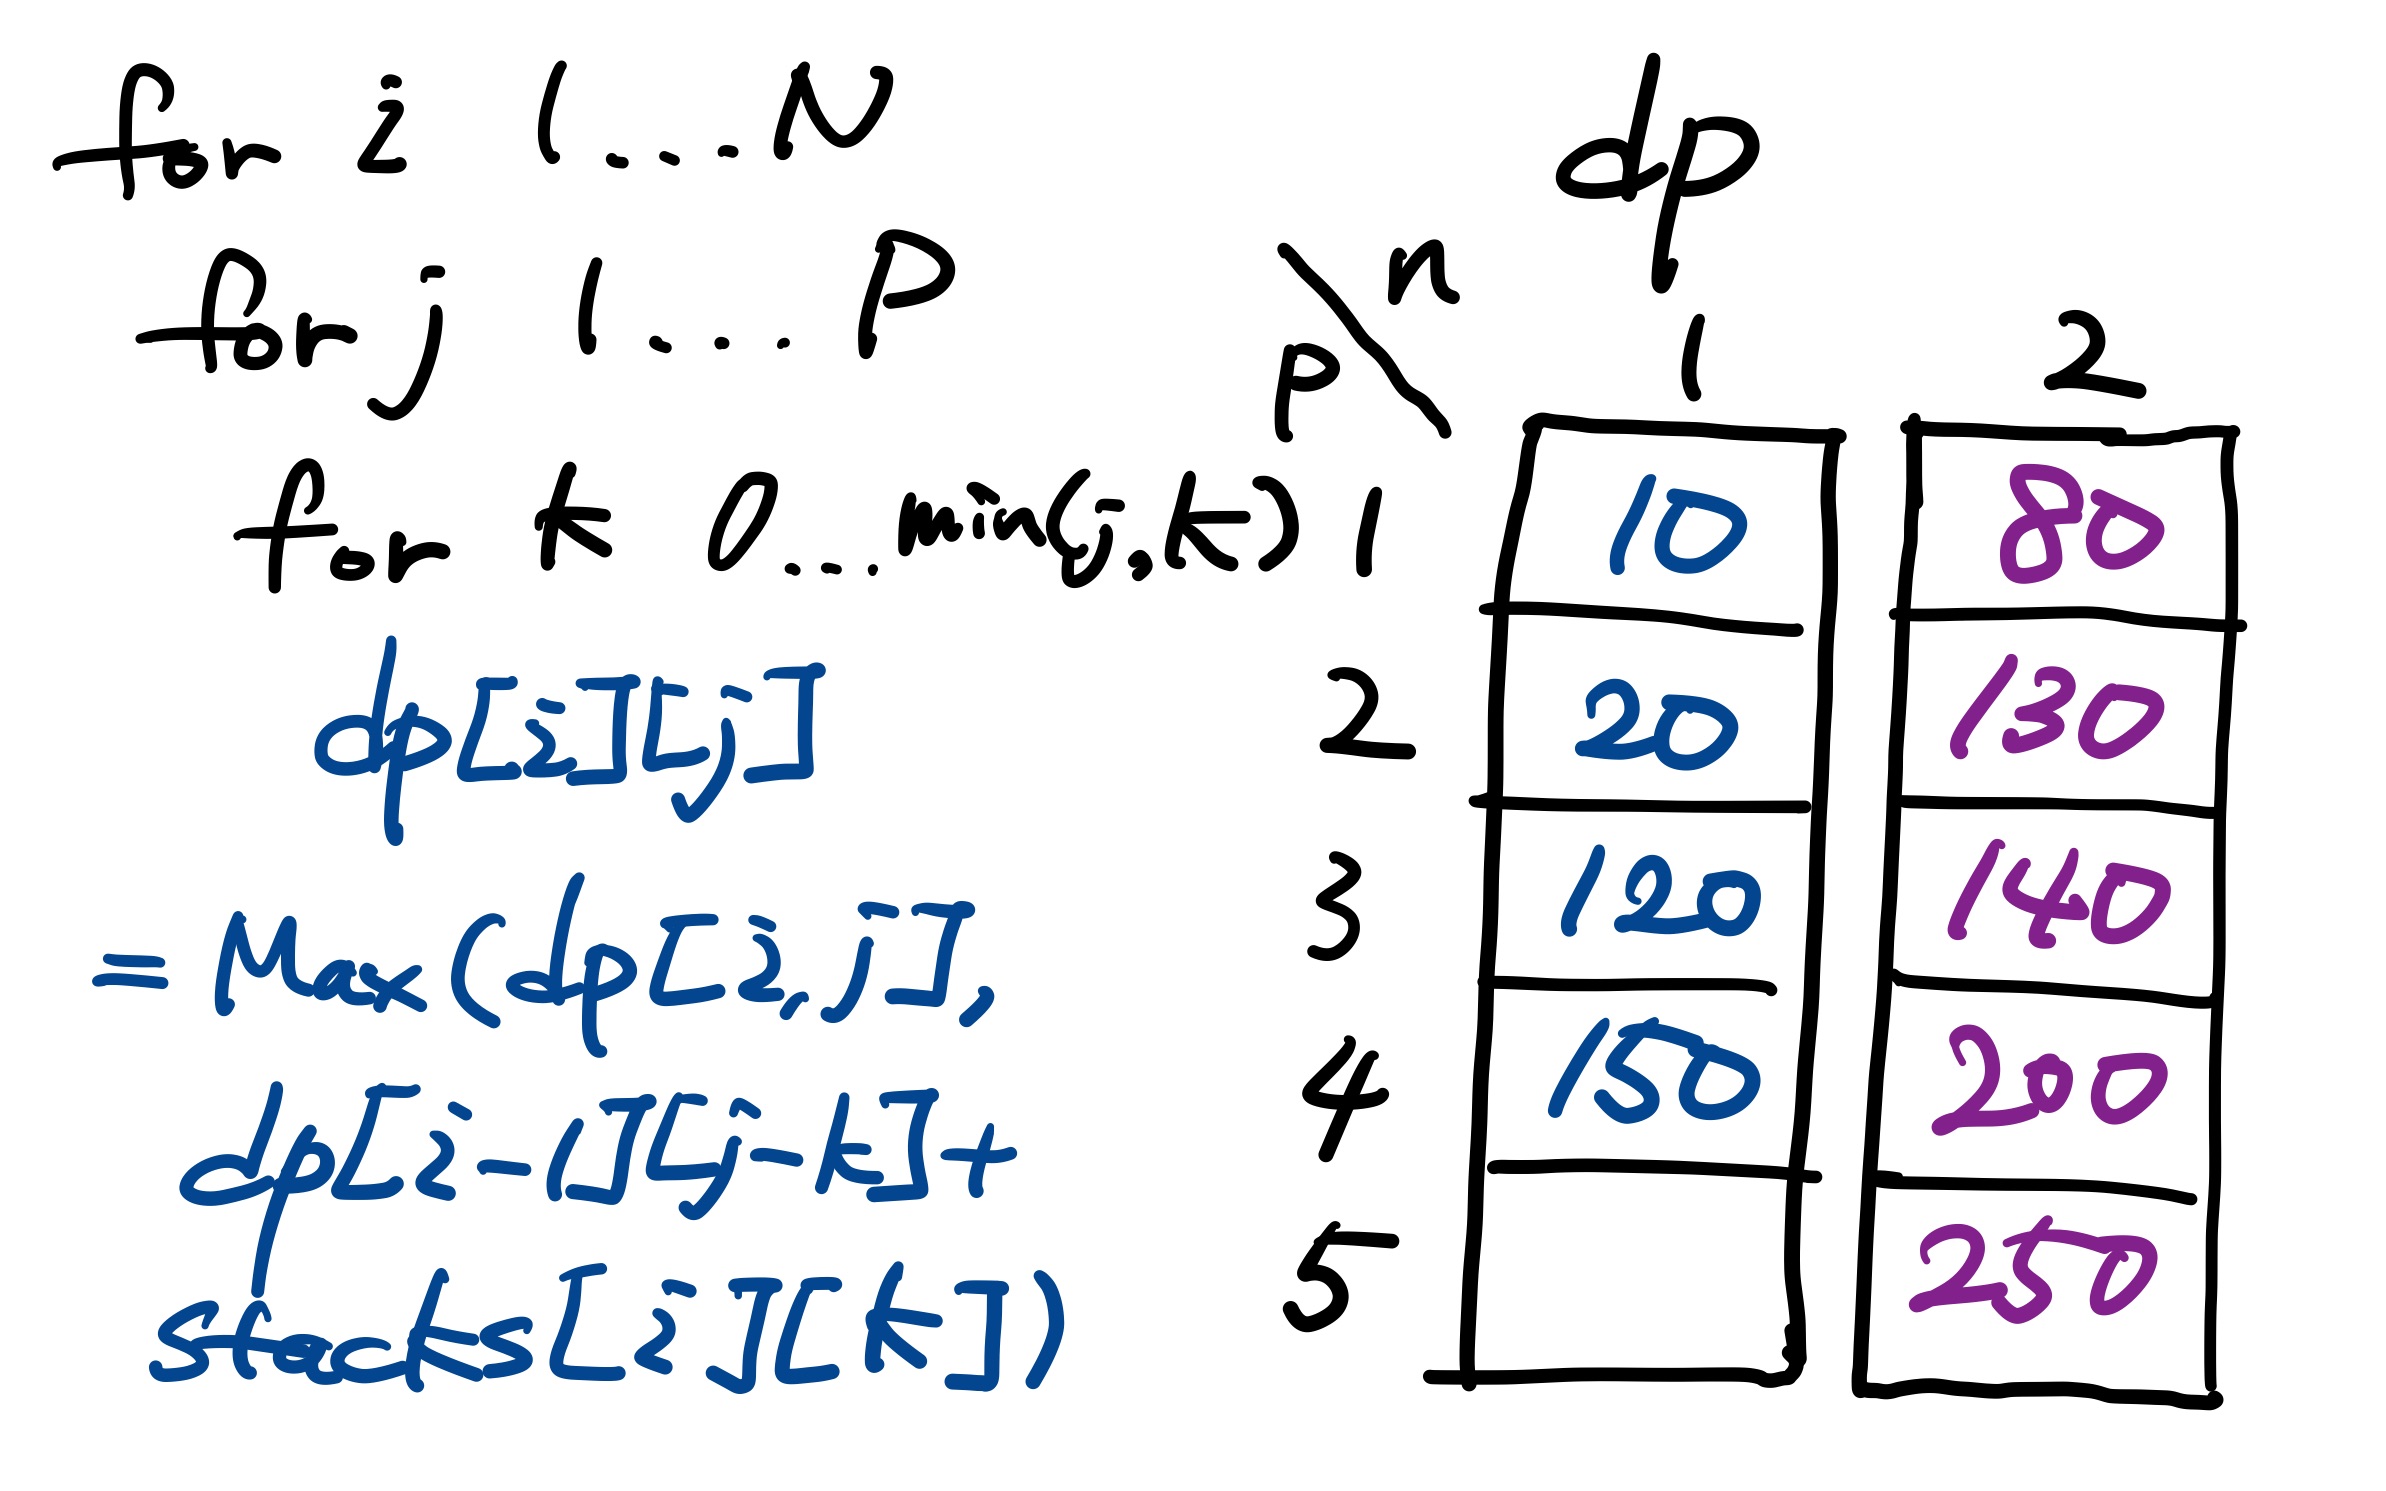 for i 1...N
for j 1...P
for k 0...min(j,k)
dp[i][j]
= Max(dp[i,j],
dp[i-1][j-k]+
stacks[i][k])
dp
n
p
1 2
1 10 80
2 20 130
3 120 140
4 150 200
5 250